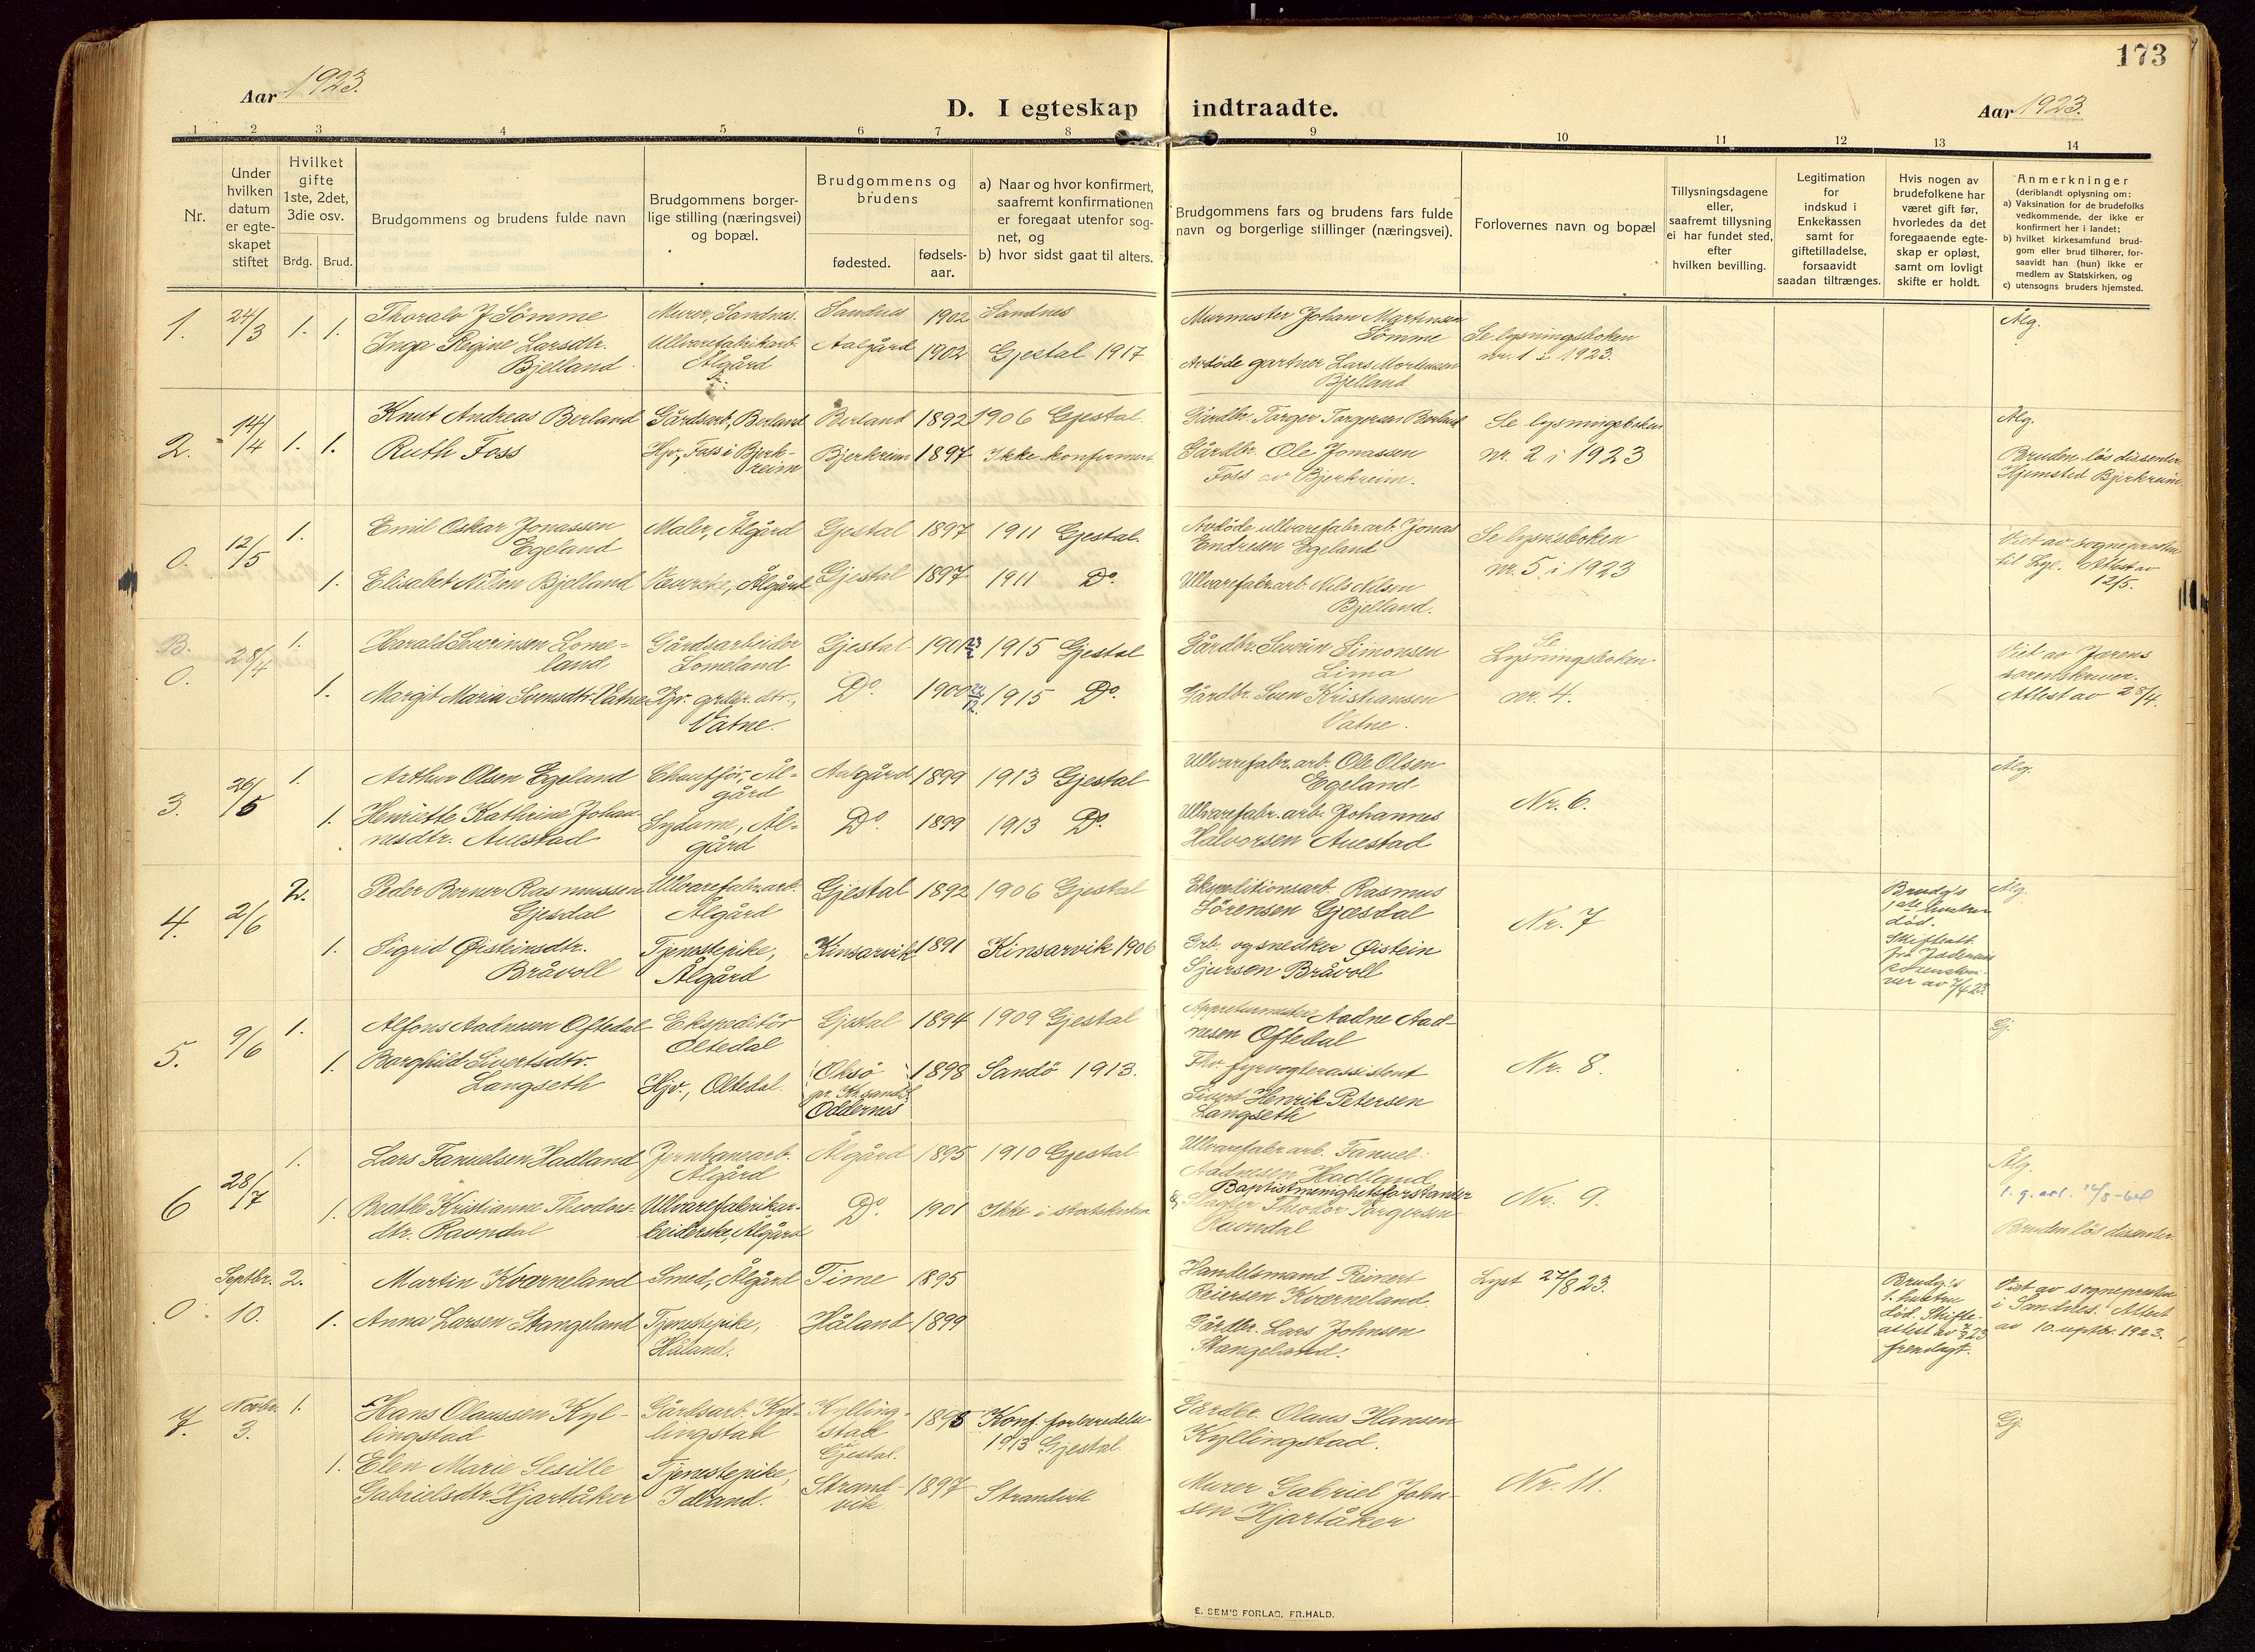 173
Aar 1923.
D. I egteskap indtraadte.
Aar 1923.
1 2 3 4 5 6 7 8 9 10 11 12 13 14
Nr.
Under hvilken datum er egteskapet stiftet
Hvilket gifte 1ste, 2det, 3die osv.
Brdg. Brud.
Brudgommens og brudens fulde navn
Brudgommens borgerlige stilling (næringsvei) og bopæl.
Brudgommens og brudens
fødested.
fødselsaar.
a) Naar og hvor konfirmert, saafremt konfirmationen er foregaat utenfor sognet, og
b) hvor sidst gaat til alters.
Brudgommens fars og brudens fars fulde navn og borgerlige stillinger (næringsvei).
Forlovernes navn og bopæl
Tillysningsdagene eller, saafremt tillysning ei har fundet sted, efter hvilken bevilling.
Legitimation for indskud i Enkekassen samt for giftetilladelse, forsaavidt saadan tiltrænges.
Hvis nogen av brudefolkene har været gift før, hvorledes da det foregaaende egteskap er opløst, samt om lovligt skifte er holdt.
Anmerkninger
(deriblandt oplysning om:
a) Vaksination for de brudefolks vedkommende, der ikke er konfirmert her i landet;
b) hvilket kirkesamfund brudgom eller brud tilhører, forsaavidt han (hun) ikke er medlem av Statskirken, og
c) utensogns bruders hjemsted.
1. 24/3 1. 1.
Thoralv J Sömme
Murer, Sandnes. Sandnes 1902 Sandnes
Murmester Johan Martinsen Sömme
Inga Regine Larsdtr. Bjelland
Ullvarefabrikarb. Ålgård
Aalgård 1902 Gjestal 1917
Avdöde gartner Lars Mortensen Bjelland
Se lysningsboken nr. 1 i 1923.
Ålg.
2. 14/4 1. 1.
Knut Andreas Berland
Gårdsarb, Berland Berland 1892 1906 Gjestal.
Gårdbr. Torger Torgersen Berland
Ruth Foss
Hjv, Foss i Bjerkreim Bjerkreim 1897 Ikke konfirmert.
Gårdbr. Ole Jonassen Foss av Bjerkreim.
Se lysningsboken nr. 2 i 1923
Ålg.
Bruden lös dissenter. Hjemsted Bjerkreim.
0. 12/5 1.
Emil Oskar Jonassen Egeland
Maler, Ålgård Gjestal 1897 1911 Gjestal.
Avdöde ullvarefabr.arb. Jonas Endresen Egeland
1. Elisabet Nilsen Bjelland
Ålgård Gjestal 1897 1911 Do.
Ullvarefabr.arb. Nils Nilsen Bjelland.
Se lysn'sboken nr. 5 i 1923
Viet av sognepresten til Lye. Attest av 12/5.
B. 0. 28/4 1.
Harald Severinsen Lomeland
Gårdsarbeider Lomeland Gjestal 1901 23/2 1915 Gjestal
Gårdbr. Severin Simonsen Lima
1. Margit Maria Svensdtr. Vatne
Hjv. grbr. dtr., Vatne. Do. 1900 1915 Do.
Gårdbr. Sven Kristiansen Vatne.
Se Lysningsboken nr. 4.
Viet av Jærens sorenskriver. Attest av 28/4.
3. 26/5 1.
Arthur Olsen Egeland
Chaufför, Ålgård Aalgård 1899 1913 Gjestal
Ullvarefabr. arb. Ole Olsen Egeland
1. Henriette Kathrine Johannesdtr. Auestad
Sydame, Ålgård Do. 1899 1913 Do.
Ullvarefabr. arb. Johannes Halvorsen Auestad
Nr. 6.
Ålg.
4. 2/6 2.
Peder Berner Rasmussen Gjesdal
Ullvarefabr.arb. Ålgård Gjestal 1892 1906 Gjestal
Ekspeditionsarb. Rasmus Sörensen Gjæsdal
1. Sigrid Øisteinsdtr. Bråvoll
Tjenestepike, Ålgård Kinsarvik 1891 Kinsarvik 1906
Grb. og snedker Øistein Sjursen Bråvoll
Nr. 7
Brudg's 1ste hustru död. Skifteatt. fra Jæderens sorenskriver av 7/4 23.
Ålg.
5. 9/6 1.
Alfons Aadnesen Oftedal
Ekspeditör Oltedal Gjestal 1894 1909 Gjestal
Appreturmester Aadne Aadnesen Oftedal
1. Borghild Sivertsdtr. Langseth
Hjv., Oltedal. Oksö pr. Kr.sand Oddernes 1898 Sandö 1913.
Fhv. fyrvogterassistent Sivert Henrik Petersen Langseth
Nr. 8.
Gj.
6 28/7 1.
Lars Fanuelsen Hadland
Jernbanearb. Ålgård Ålgård 1895 1910 Gjestal.
Ullvarefabr arb. Fanuel Aadnesen Hadland
1. Beathe Kristianne Theodorsdtr. Ravndal
Ullvarefabrikarbeiderske, Ålgård Do. 1901 Ikke i statskirken
Baptistmenighetsforstander & Slagter Theodor Torgersen Ravndal
Nr. 9.
Ålg.
Bruden lös dissenter.
0 Septbr. 10. 2.
Martin Kværneland
Smed, Ålgård Time 1895
Handelsmand Reinert Reiersen Kværneland.
1. Anna Larsen Stangeland
Tjenestepike, Håland. Håland 1899
Gårdbr. Lars Johnsen Stangeland.
Lyst 27/8 23.
Brudg's 1. hustru död. Skifteattest av 2/8 23 fremlagt.
Viet av sognepresten i Sandnes. Attest av 10. septbr. 1923.
7. Novbr. 3. 1.
Hans Olaussen Kyllingstad
Gårdsarb. Kyllingstad Kyllingstad Gjestal. 1898 Konf. forberedelse 1913 Gjestal
Gårdbr. Olaus Hansen Kyllingstad.
1. Elen Marie Sesille Gabrielsdtr. Hjartåker
Tjenestepike, Strandvik 1897 Strandvik
Murer Gabriel Johnsen Hjartåker
Nr. 11.
Gj
E. SEM'S FORLAG, FR.HALD.